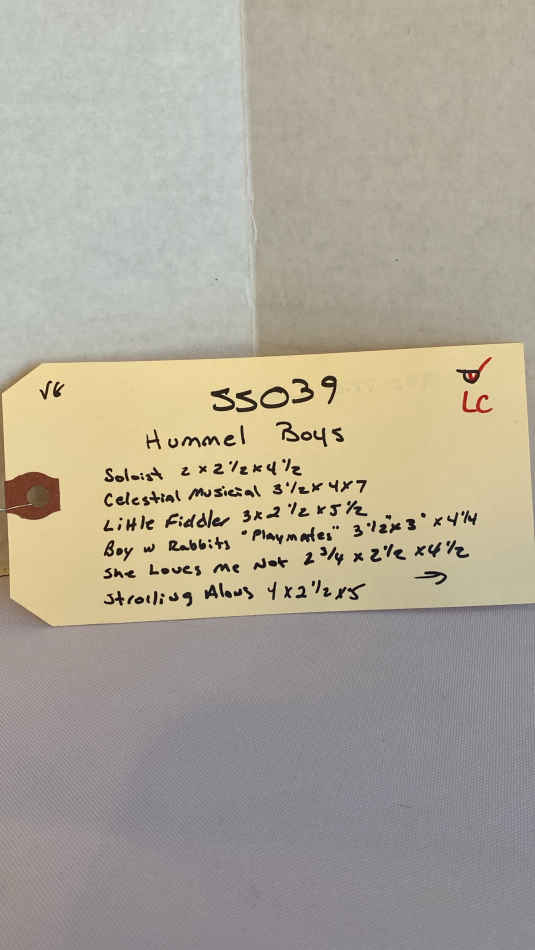 V8
SS039
LC
Hummel Boys
Soloist 2 x 2 1/2 x 4 1/2
Celestial Musicial 3 1/2 x 4 x 7
Little Fiddler 3 x 2 1/2 x 5 1/2
Boy w Rabbits "Playmates" 3 1/2" x 3" x 4 1/4
She Loves me Not 2 3/4 x 2 1/2 x 4 1/2
Strolling Along 4 x 2 1/2 x 5 →